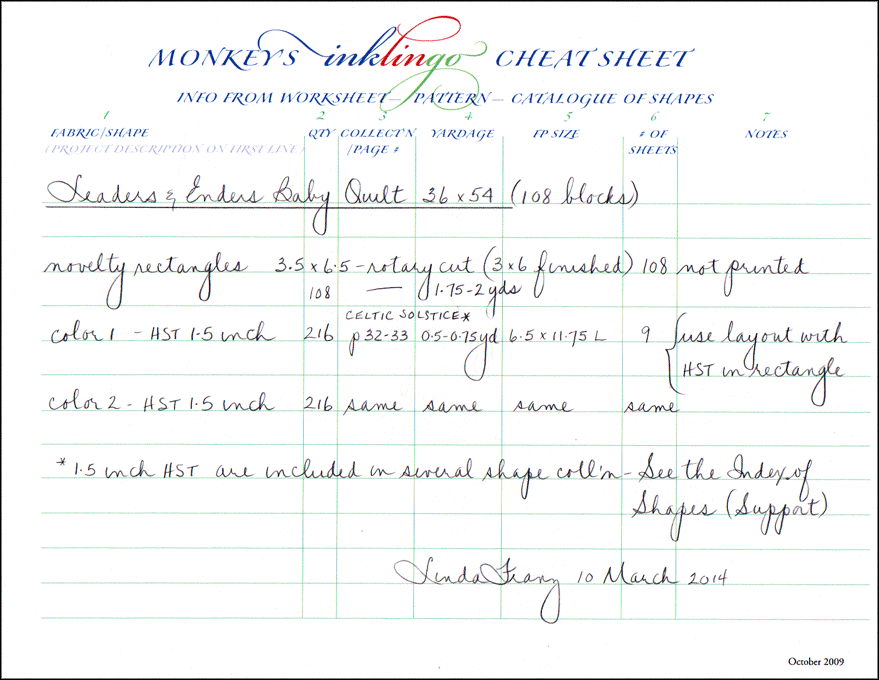 MONKEY'S inklingo CHEAT SHEET
INFO FROM WORKSHEET — PATTERN — CATALOGUE OF SHAPES
1 2 3 4 5 6 7
FABRIC/SHAPE QTY COLLECT'N YARDAGE FP SIZE # OF NOTES
(PROJECT DESCRIPTION ON FIRST LINE) /PAGE # SHEETS
Leaders & Enders Baby Quilt 36 x 54 (108 blocks)
novelty rectangles 3.5 x 6.5 - rotary cut (3 x 6 finished) 108 not printed
108 — 1.75-2 yds
CELTIC SOLSTICE*
color 1 - HST 1.5 inch 216 p 32-33 0.5-0.75 yd 6.5 x 11.75 L 9 use layout with
HST in rectangle
color 2 - HST 1.5 inch 216 same same same same
* 1.5 inch HST are included in several shape coll'n - See the Index of
Shapes (Support)
Linda Franz 10 March 2014
October 2009